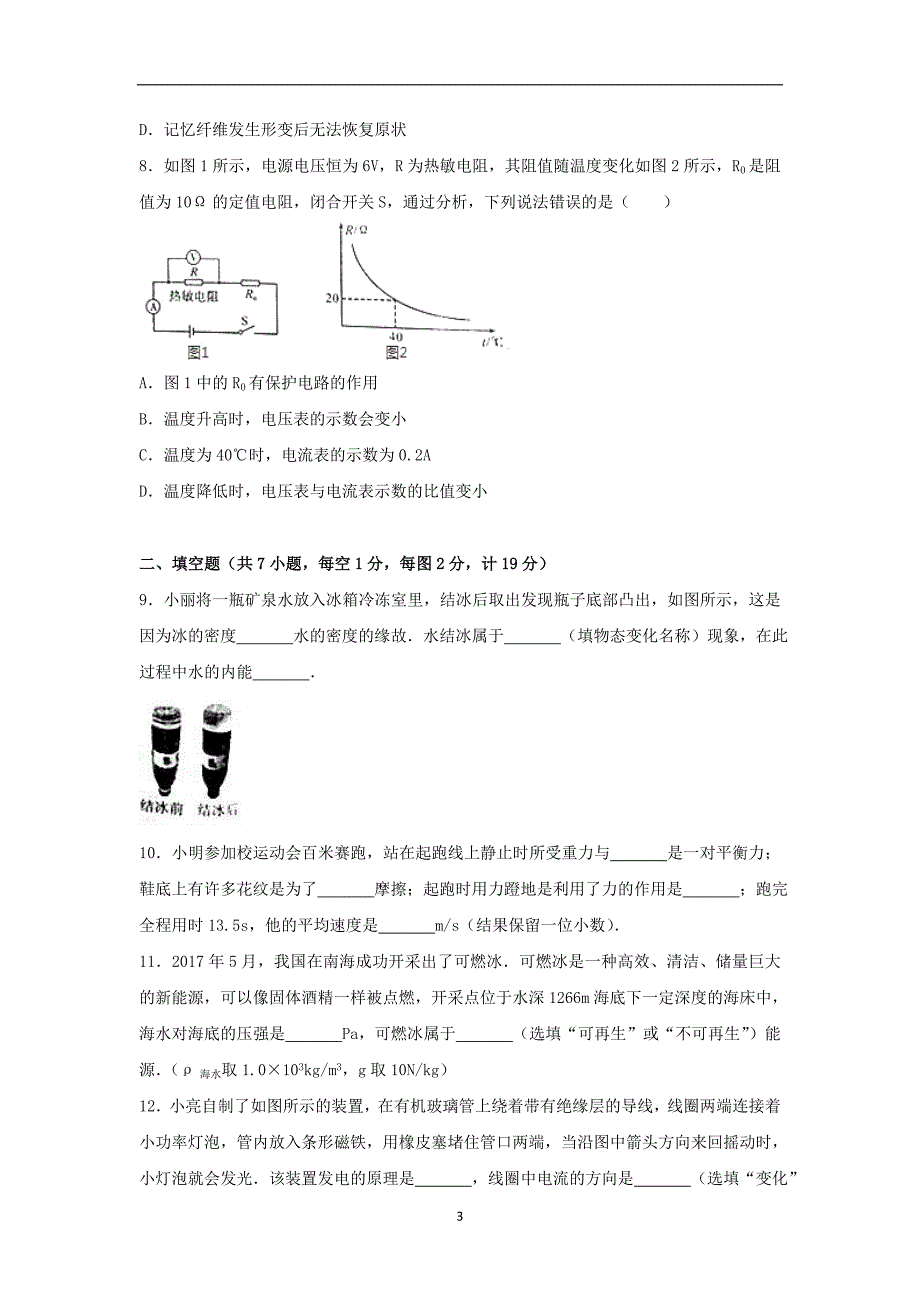 D．记忆纤维发生形变后无法恢复原状
8．如图 1 所示，电源电压恒为 6V，R 为热敏电阻，其阻值随温度变化如图 2 所示，R₀是阻
值为 10Ω 的定值电阻，闭合开关 S，通过分析，下列说法错误的是（　　）
V
R
热敏电阻
R₀
A
S
图1
R/Ω
20
40
t/℃
图2
A．图 1 中的 R₀有保护电路的作用
B．温度升高时，电压表的示数会变小
C．温度为 40℃时，电流表的示数为 0.2A
D．温度降低时，电压表与电流表示数的比值变小
二、填空题（共 7 小题，每空 1 分，每图 2 分，计 19 分）
9．小丽将一瓶矿泉水放入冰箱冷冻室里，结冰后取出发现瓶子底部凸出，如图所示，这是
因为冰的密度_______水的密度的缘故．水结冰属于_______（填物态变化名称）现象，在此
过程中水的内能_______．
结冰前 结冰后
10．小明参加校运动会百米赛跑，站在起跑线上静止时所受重力与_______是一对平衡力；
鞋底上有许多花纹是为了_______摩擦；起跑时用力蹬地是利用了力的作用是_______；跑完
全程用时 13.5s，他的平均速度是_______m/s（结果保留一位小数）．
11．2017 年 5 月，我国在南海成功开采出了可燃冰．可燃冰是一种高效、清洁、储量巨大
的新能源，可以像固体酒精一样被点燃，开采点位于水深 1266m 海底下一定深度的海床中，
海水对海底的压强是_______Pa，可燃冰属于_______（选填“可再生”或“不可再生”）能
源．（ρ 海水取 1.0×10³kg/m³，g 取 10N/kg）
12．小亮自制了如图所示的装置，在有机玻璃管上绕着带有绝缘层的导线，线圈两端连接着
小功率灯泡，管内放入条形磁铁，用橡皮塞堵住管口两端，当沿图中箭头方向来回摇动时，
小灯泡就会发光．该装置发电的原理是_______，线圈中电流的方向是_______（选填“变化”
3